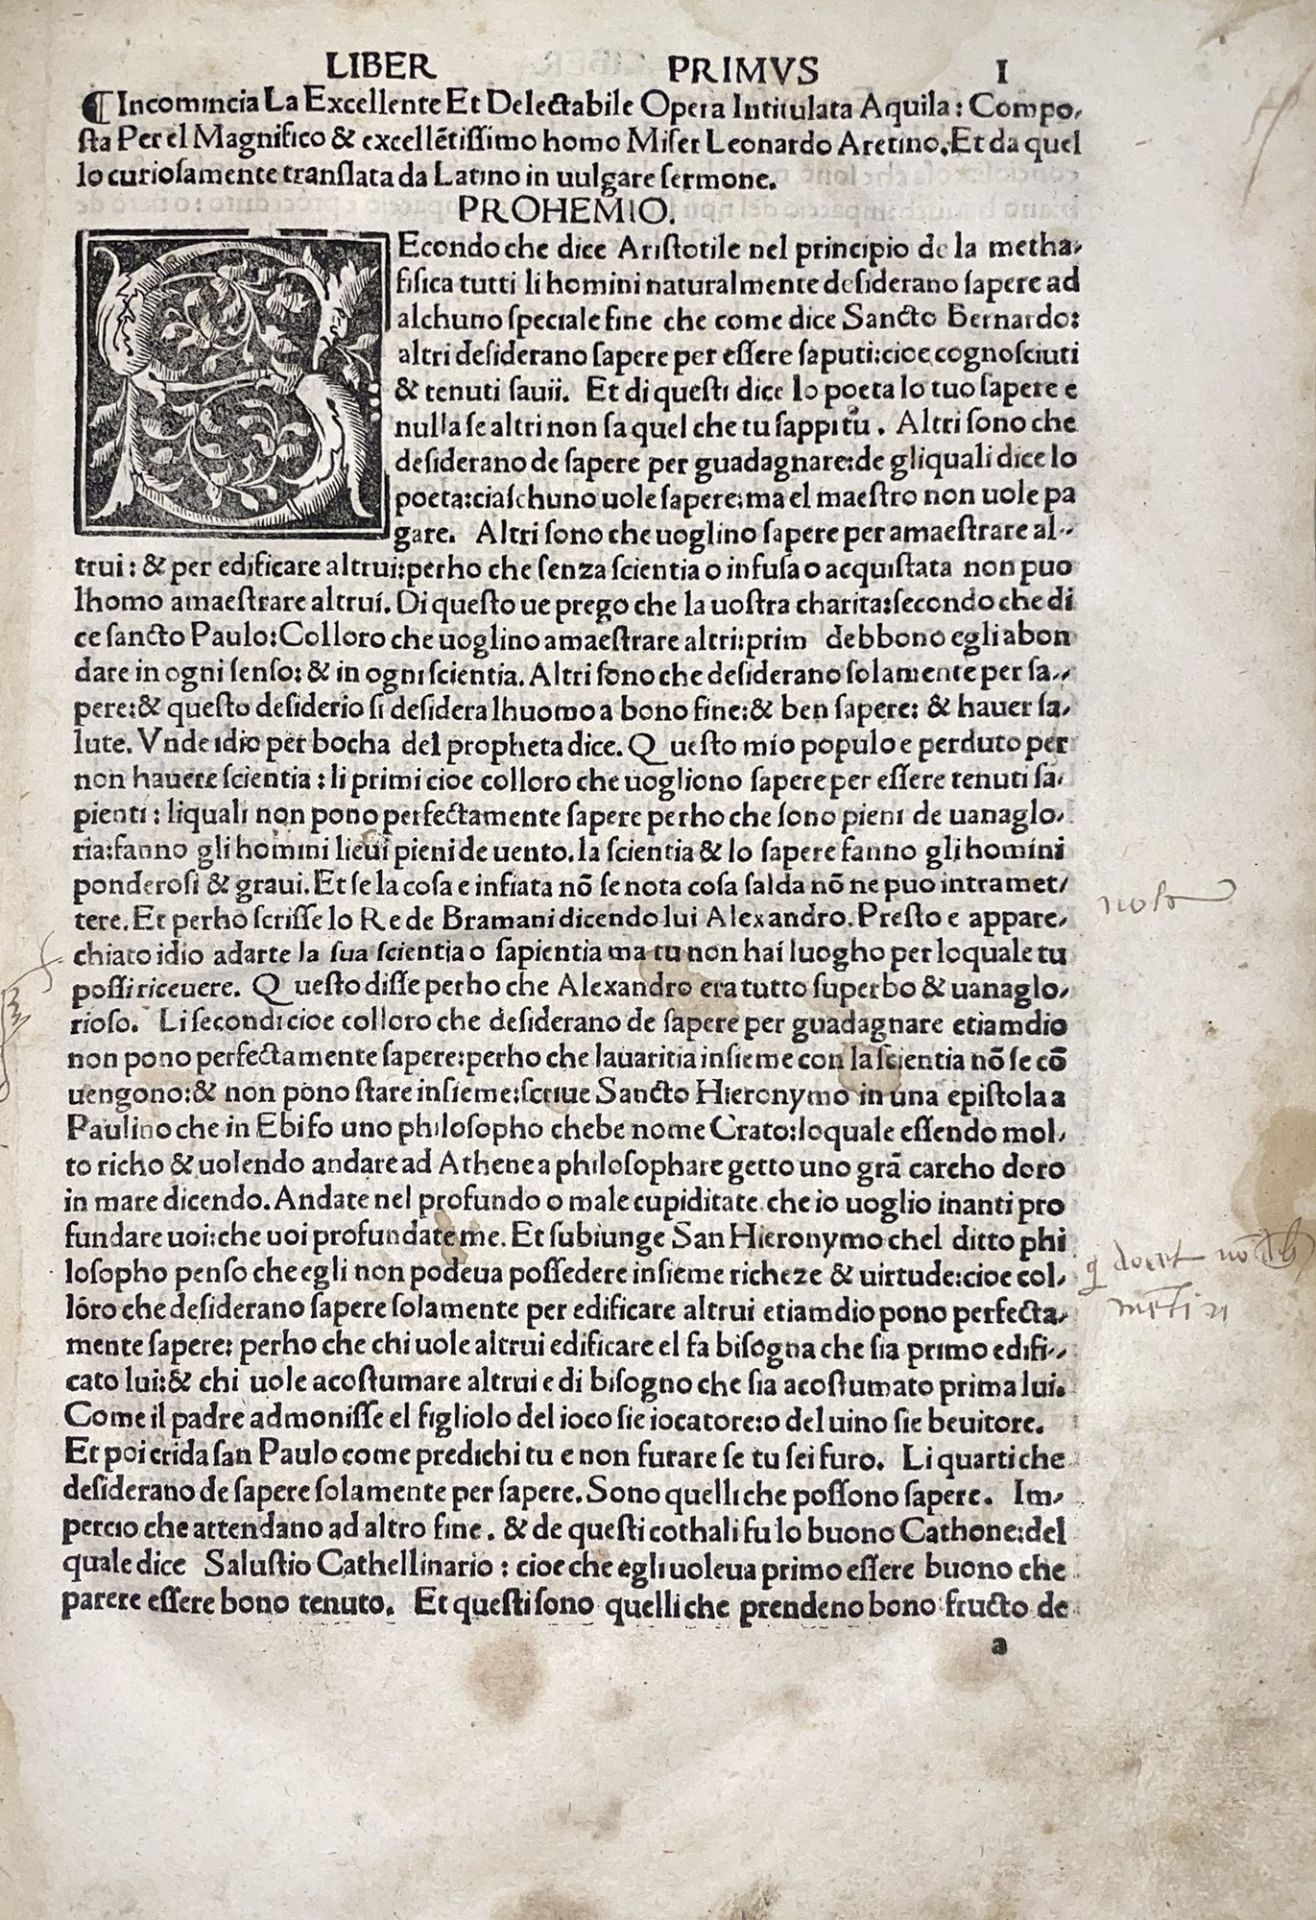 LIBER PRIMVS I
¶ Incomincia La Excellente Et Delectabile Opera Intitulata Aquila: Compo,
ſta Per el Magnifico & excellẽtiſſimo homo Miſer Leonardo Aretino. Et da quel
lo curioſamente tranſlata da Latino in uulgare ſermone.
PROHEMIO.
SEcondo che dice Ariſtotile nel principio de la metha,
fiſica tutti li homini naturalmente deſiderano ſapere ad
alchuno ſpeciale fine che come dice Sancto Bernardo:
altri deſiderano ſapere per eſſere ſaputi:cioe cognoſciuti
& tenuti ſauii. Et di queſti dice lo poeta lo tuo ſapere e
nulla ſe altri non ſa quel che tu ſappi tu. Altri ſono che
deſiderano de ſapere per guadagnare:de gliquali dice lo
poeta:ciaſchuno uole ſapere:ma el maeſtro non uole pa
gare. Altri ſono che uoglino ſapere per amaeſtrare al,,
trui: & per edificare altrui:perho che ſenza ſcientia o infuſa o acquiſtata non puo
lhomo amaeſtrare altrui. Di queſto ue prego che la uoſtra charita:ſecondo che di
ce ſancto Paulo:Colloro che uoglino amaeſtrare altri:prim debbono egli abon
dare in ogni ſenſo:& in ogni ſcientia. Altri ſono che deſiderano ſolamente per ſa,,
pere:& queſto deſiderio ſi deſidera lhuomo a bono fine:& ben ſapere: & hauer ſa,
lute. Vnde idio per bocha del propheta dice. Q ueſto mio populo e perduto per
non hauere ſcientia: li primi cioe colloro che uogliono ſapere per eſſere tenuti ſa,
pienti: liquali non pono perfectamente ſapere perho che ſono pieni de uanaglo,
ria:fanno gli homini lieui pieni de uento. la ſcientia & lo ſapere fanno gli homini
ponderoſi & graui. Et ſe la coſa e infiata nõ ſe nota coſa ſalda nõ ne puo intramet,
tere. Et perho ſcriſſe lo Re de Bramani dicendo lui Alexandro. Preſto e appare,
chiato idio adarte la ſua ſcientia o ſapientia ma tu non hai luogho per loquale tu
poſſi riceuere. Q ueſto diſſe perho che Alexandro era tutto ſuperbo & uanaglo,
rioſo. Li ſecondi cioe colloro che deſiderano de ſapere per guadagnare etiamdio
non pono perfectamente ſapere:perho che lauaritia inſieme con la ſcientia nõ ſe cõ
uengono:& non pono ſtare inſieme:ſcriue Sancto Hieronymo in una epiſtola a
Paulino che in Ebifo uno philoſopho chebe nome Crato:loquale eſſendo mol,
to richo & uolendo andare ad Athene a philoſophare getto uno grã carcho doro
in mare dicendo. Andate nel profundo o male cupiditate che io uoglio inanti pro
fundare uoi:che uoi profundate me. Et ſubiunge San Hieronymo chel ditto phi
loſopho penſo che egli non podeua poſſedere inſieme richeze & uirtude:cioe col,
loro che deſiderano ſapere ſolamente per edificare altrui etiamdio pono perfecta,
mente ſapere: perho che chi uole altrui edificare el fa biſogna che ſia primo edifi,,
cato lui:& chi uole acoſtumare altrui e di biſogno che ſia acoſtumato prima lui.
Come il padre admoniſſe el figliolo del ioco ſie iocatore:o del uino ſie beuitore.
Et poi crida ſan Paulo come predichi tu e non furare ſe tu ſei furo. Li quarti che
deſiderano de ſapere ſolamente per ſapere. Sono quelli che poſſono ſapere. Im,
percio che attendano ad altro fine. & de queſti cothali fu lo buono Cathone:del
quale dice Saluſtio Cathellinario: cioe che egli uoleua primo eſſere buono che
parere eſſere bono tenuto. Et queſti ſono quelli che prendeno bono fructo de
a